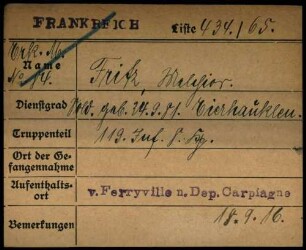 FRANKREICH Liste 434/65.
Erk. M.
No 14.
Name Fritz, Melchior.
Dienstgrad Sold. geb. 24.9.81.
Truppenteil 119. Inf. R.
Ort der Gefangennahme
Aufenthaltsort v. Ferryville n. Dep. Carpiagne
Bemerkungen 18.9.16.